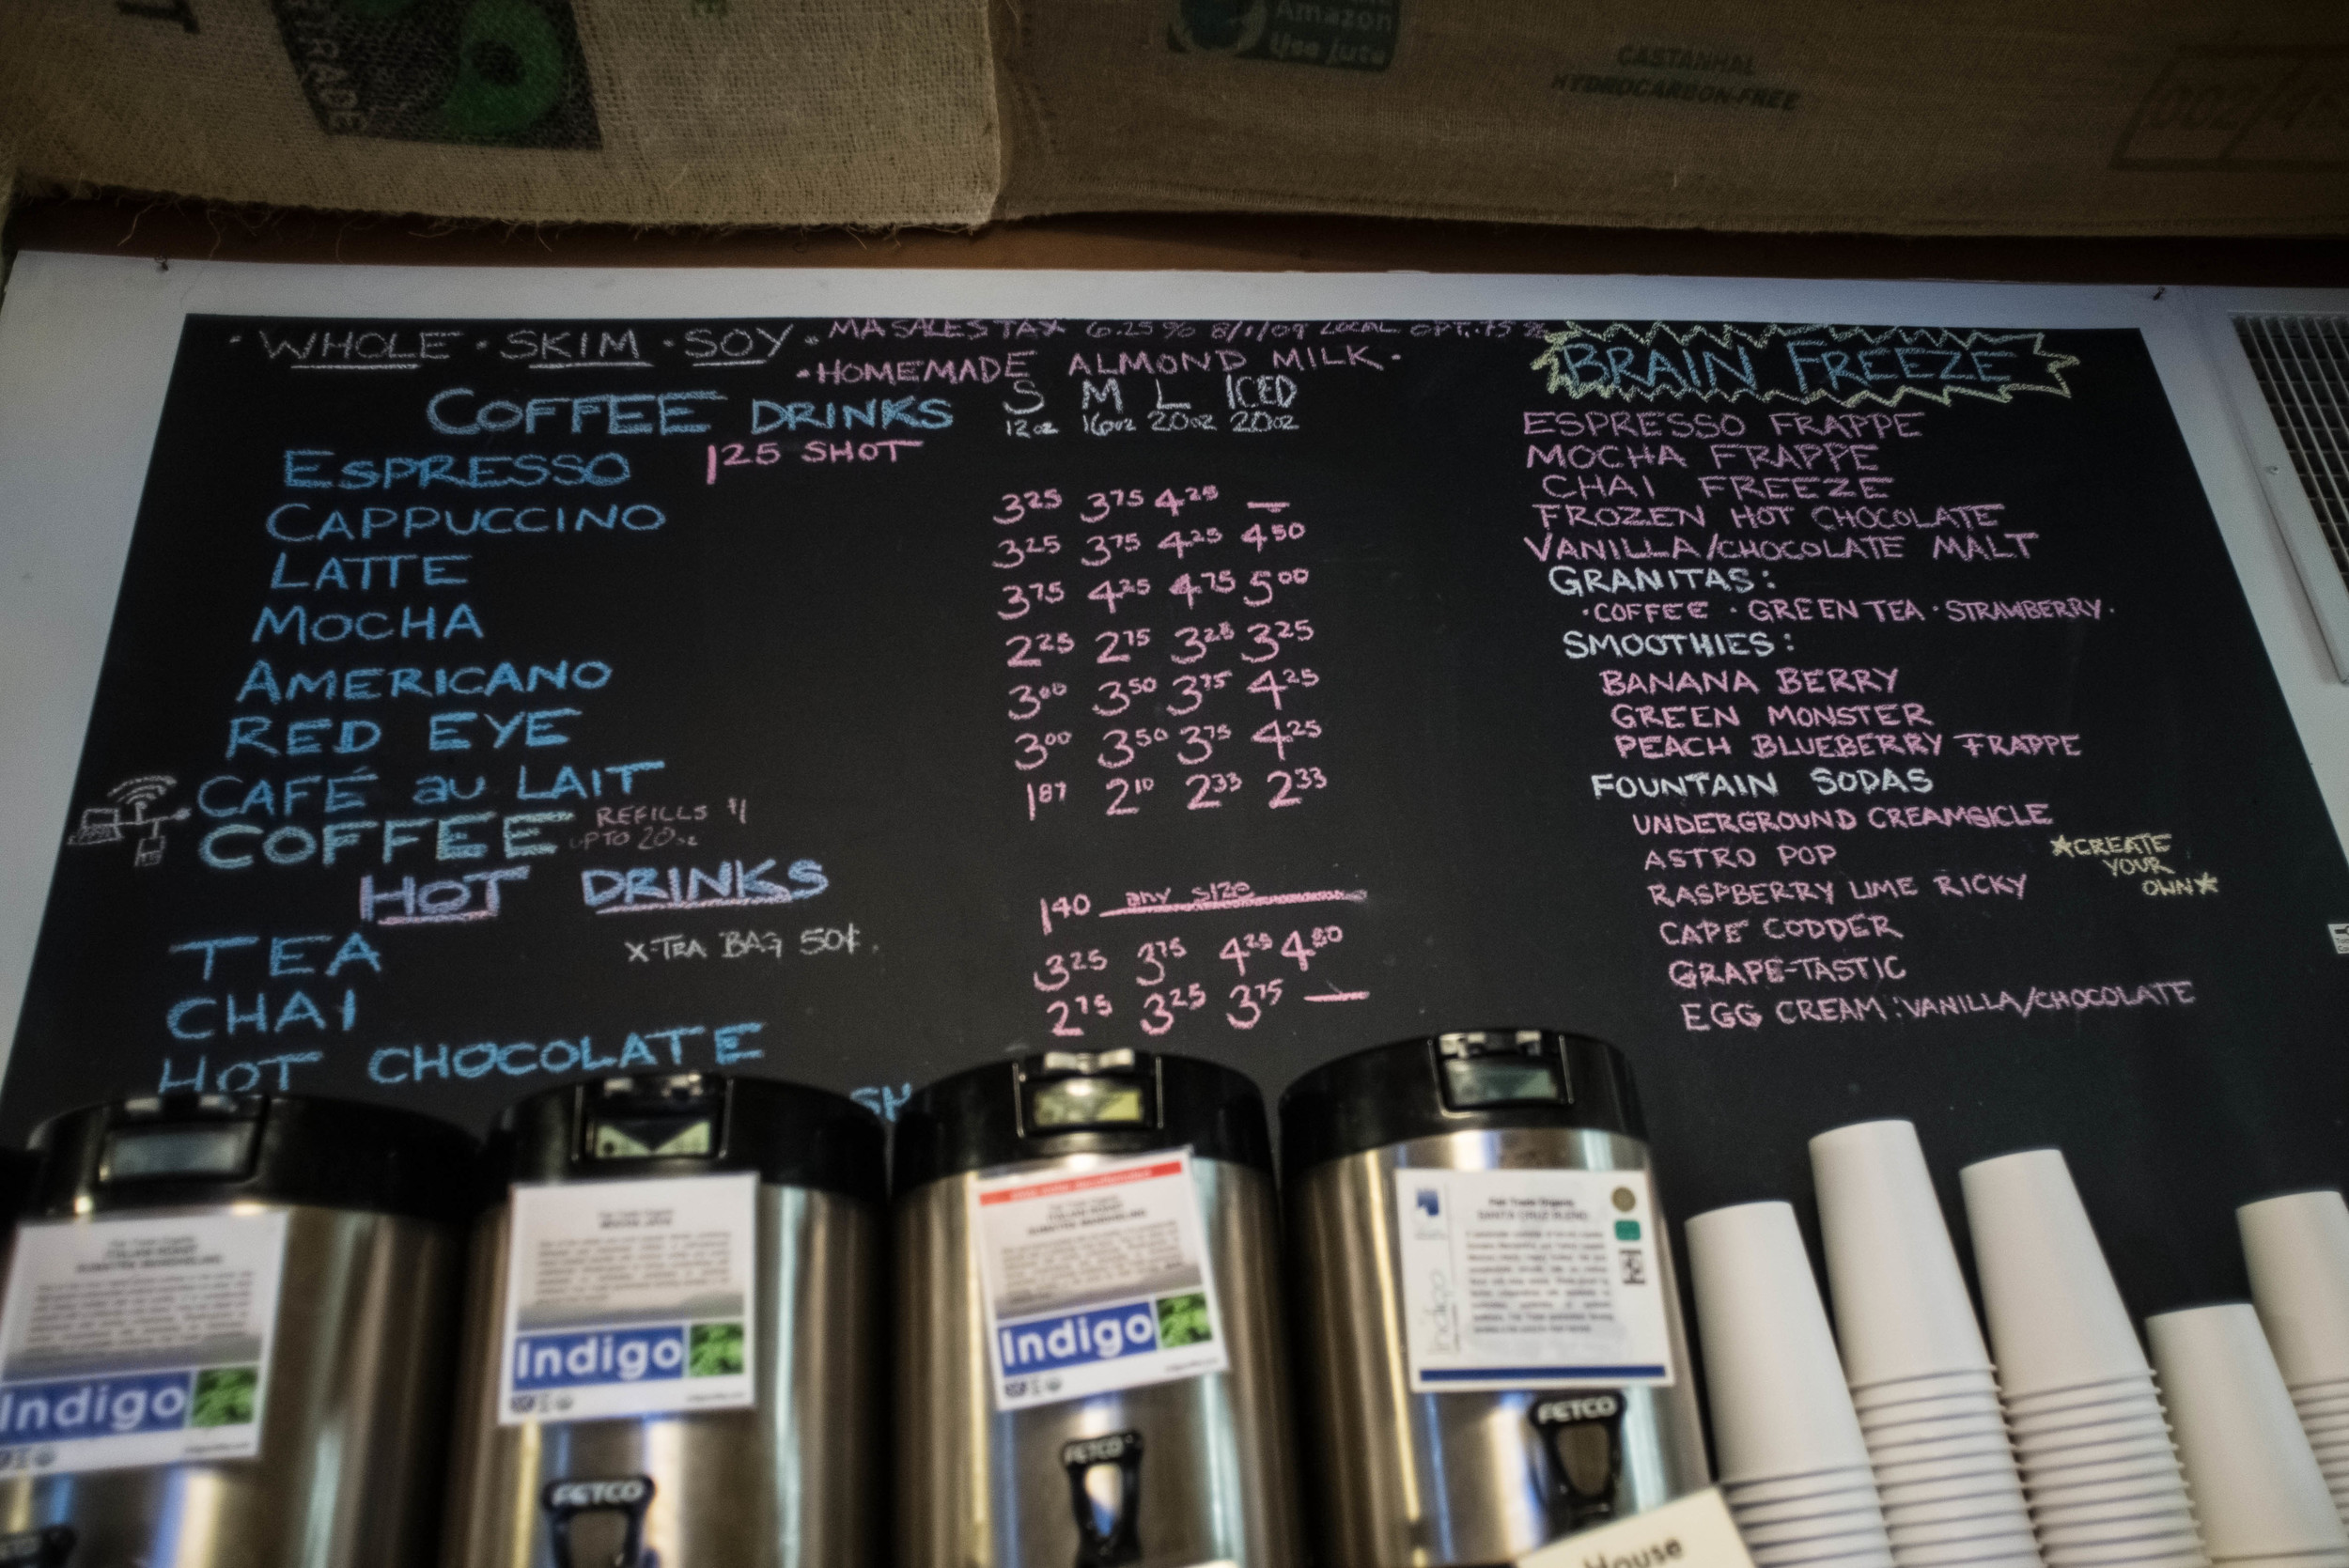 TRADE
Amazon
Use Jute
CASTANHAL
HYDROCARBON-FREE
002/4
· WHOLE · SKIM · SOY · MA SALES TAX 6.25% 8/1/09 LOCAL OPT. .75%
· HOMEMADE ALMOND MILK ·
COFFEE DRINKS S M L ICED
12oz 16oz 20oz 20oz
ESPRESSO 1.25 SHOT
CAPPUCCINO 3.25 3.75 4.25 —
LATTE 3.25 3.75 4.25 4.50
MOCHA 3.75 4.25 4.75 5.00
AMERICANO 2.25 2.75 3.25 3.25
RED EYE 3.00 3.50 3.75 4.25
CAFÉ au LAIT 3.00 3.50 3.75 4.25
COFFEE REFILLS $1 1.87 2.10 2.33 2.33
UP TO 20oz
HOT DRINKS
TEA X-TRA BAG 50¢. 1.40 any size
CHAI 3.25 3.75 4.25 4.50
HOT CHOCOLATE 2.75 3.25 3.75 —
SH
BRAIN FREEZE
ESPRESSO FRAPPE
MOCHA FRAPPE
CHAI FREEZE
FROZEN HOT CHOCOLATE
VANILLA/CHOCOLATE MALT
GRANITAS:
· COFFEE · GREEN TEA · STRAWBERRY ·
SMOOTHIES:
BANANA BERRY
GREEN MONSTER
PEACH BLUEBERRY FRAPPE
FOUNTAIN SODAS
UNDERGROUND CREAMSICLE
ASTRO POP
RASPBERRY LIME RICKY
CAPE CODDER
GRAPE-TASTIC
EGG CREAM: VANILLA/CHOCOLATE
*CREATE
YOUR
OWN*
Fair Trade Organic
ITALIAN ROAST
SUMATRA MANDHELING
Indigo
Fair Trade Organic
MOCHA JAVA
Indigo
FETCO
Fair Trade Organic
ITALIAN ROAST
SUMATRA MANDHELING
Indigo
FETCO
Fair Trade Organic
SANTA CRUZ BLEND
Indigo
FETCO
House